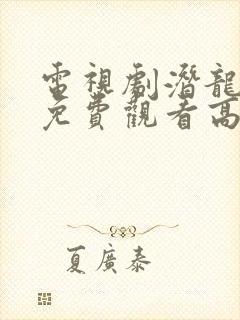 電視劇潛龍
免費觀看高
夏廣泰